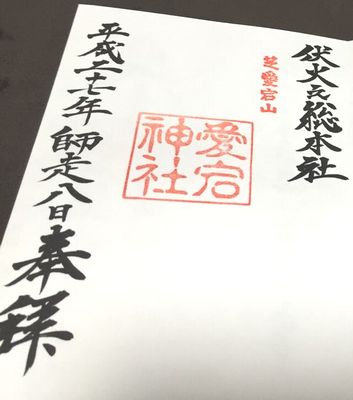 伏火之総本社
芝愛宕山
愛宕
神社
平成二十七年 師走八日 奉拝